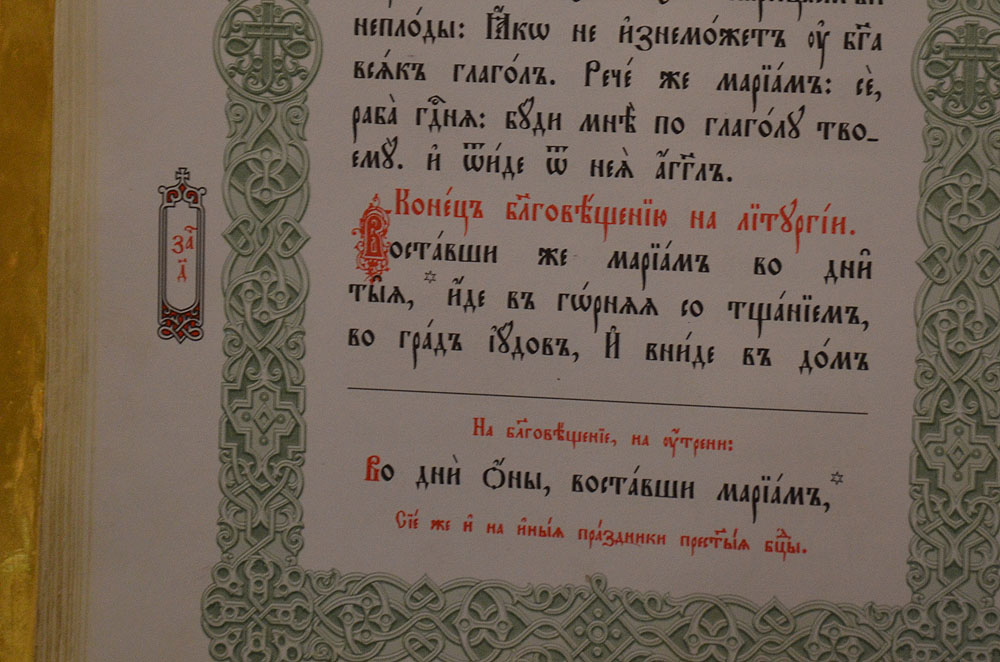 неплоды: Ꙗ҆́кѡ не и҆знемо́жетъ ѹ҆ бг҃а
всѧ́къ глаго́лъ. Рече́ же марїа́мъ: сѐ,
раба̀ гдⷭ҇нѧ: бꙋди мнѣ̀ по глаго́лꙋ тво_
емꙋ̀. и҆ ѿи́де ѿ неѧ̀ а҆́гг҃лъ.
Коне́цъ бл҃говѣ́щенїю на лїтꙋргі́и.
Воста́вши же марїа́мъ во дни̑
ты̑ѧ, * и҆́де въ гѡ́рнѧѧ со тща́нїемъ,
во гра́дъ і҆ꙋ́довъ, И҆ вни́де въ до́мъ
за҄
д҃
На бл҃говѣ́щенїе, на ѹ҆́трени:
Во дни̑ ѻ҆́ны, воста́вши марїа́мъ, *
Сїе́ же и҆ на и҆ны̑ѧ пра́здники прест҃ы́ѧ бцⷣы.